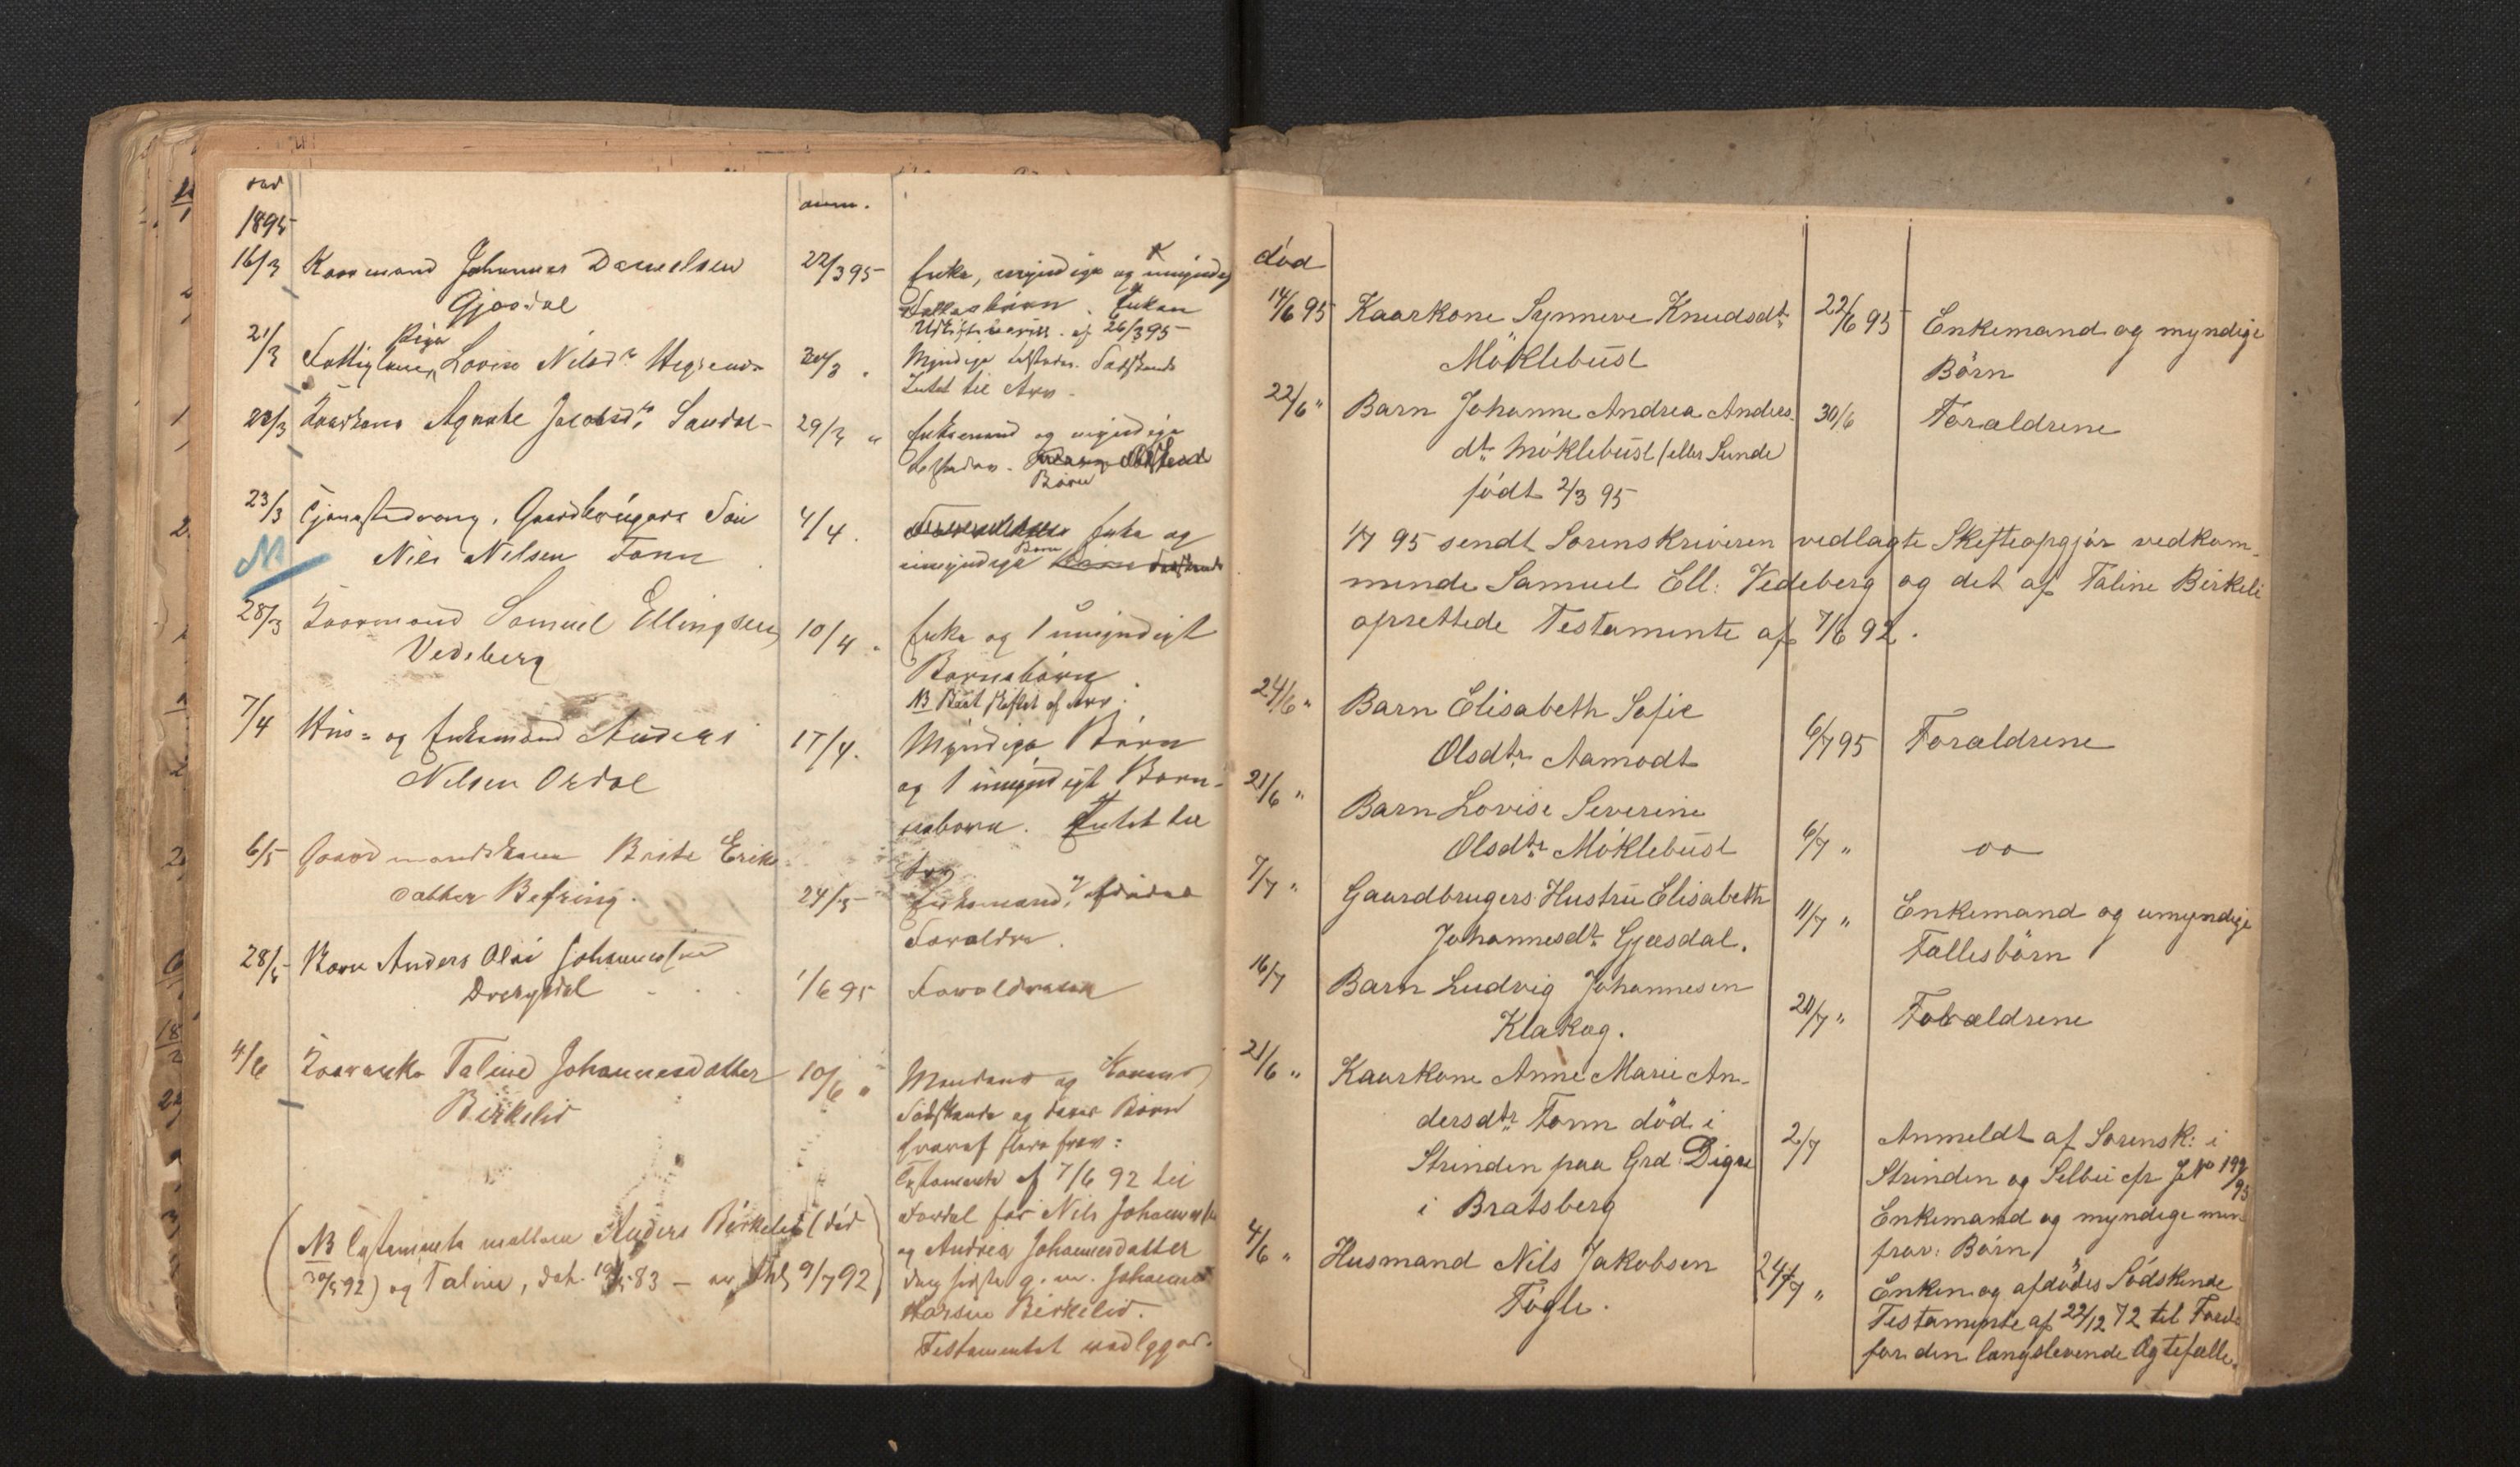 død
1895
anm.
16/3 Kaarmand Johannes Danielsen
Gjæsdal
22/3 95 Enke, myndige og umyndig
Fællesbørn. Enken
Uskiftebevill. af 26/3 95
21/3 Fattiglem, Pige Lovise Nilsdtr
Myndige Sødskende
Intet til Arv.
Kaarkone Agnete Jacobsdtr Sandal
29/3 " Enkemand og myndige
Børn
23/3 Gaardbrugers Søn
Nils Nilsen Fonn
4/4. Enke og
umyndige Børn
28/3 Kaarmand Samuel Ellingsen
Vedeberg
10/4 " Enke og 1 umyndigt
Barnebarn
NB
7/4 Hus= og Enkemand Anders
Nilsen Ordal
17/4. Myndige Børn
og 1 umyndigt Barn-
ebarn. Intet til
Arv
6/5 Gaardmandskone Brite Eriks-
datter Befring.
24/5 Enkemand, afdødes
Forældre.
28/5 Barn Anders Olai Johannessen
Dvergsdal
1/6 95 Forældrene
4/6 Kaarenke Taline Johannesdatter
Birkelid
10/6 " Mandens og Konens
Sødskende og deres Børn
hvoraf flere frav:
Testamente af 7/6 92 til
Fordel for Nils Johannessen
og Andrea Johannesdatter
den sidste g. m. Johannes
Larsen Birkelid.
Testamentet vedlægges.
(NB Testamente mellem Anders Birkelid (død
30/5 92) og Taline, dat. 83 – 9/7 92)
død
14/6 95 Kaarkone Synneve Knudsdtr
Möklebust
22/6 95 Enkemand og myndige
Börn
22/6 " Barn Johanne Andrea Anders-
dtr Möklebust (eller Sunde)
födt 2/3 95
30/6 Forældrene
1/7 95 sendt Sorenskriveren vedlagte Skifteopgjör vedkom-
mende Samuel Ell: Vedeberg og det af Taline Birkeli
oprettede Testamente af 7/6 92.
24/6 " Barn Elisabeth Sofie
Olsdtr Aamodt
6/7 95 Forældrene
21/6 " Barn Lovise Severine
Olsdtr Möklebust
6/7 " oo
7/7 " Gaardbrugers Hustru Elisabeth
Johannesdtr Gjæsdal.
11/7 " Enkemand og umyndige
Fællesbörn
16/7 Barn Ludvig Johannesen
Klakeg.
20/7 " Forældrene
21/6 " Kaarkone Anne Marie An-
dersdtr Fonn död i
Strinden paa Grd: Digre
i Bratsberg
2/7 Anmeldt af Sorensk: i
Strinden og Selbu cfr J No 199/95
Enkemand og myndige men
frav: Börn
4/6 " Husmand Nils Jakobsen
Fögle.
24/7 " Enken og afdödes Södskende
Testamente af 22/12 72 til Ford
for den længstlevende Ægtefælle.